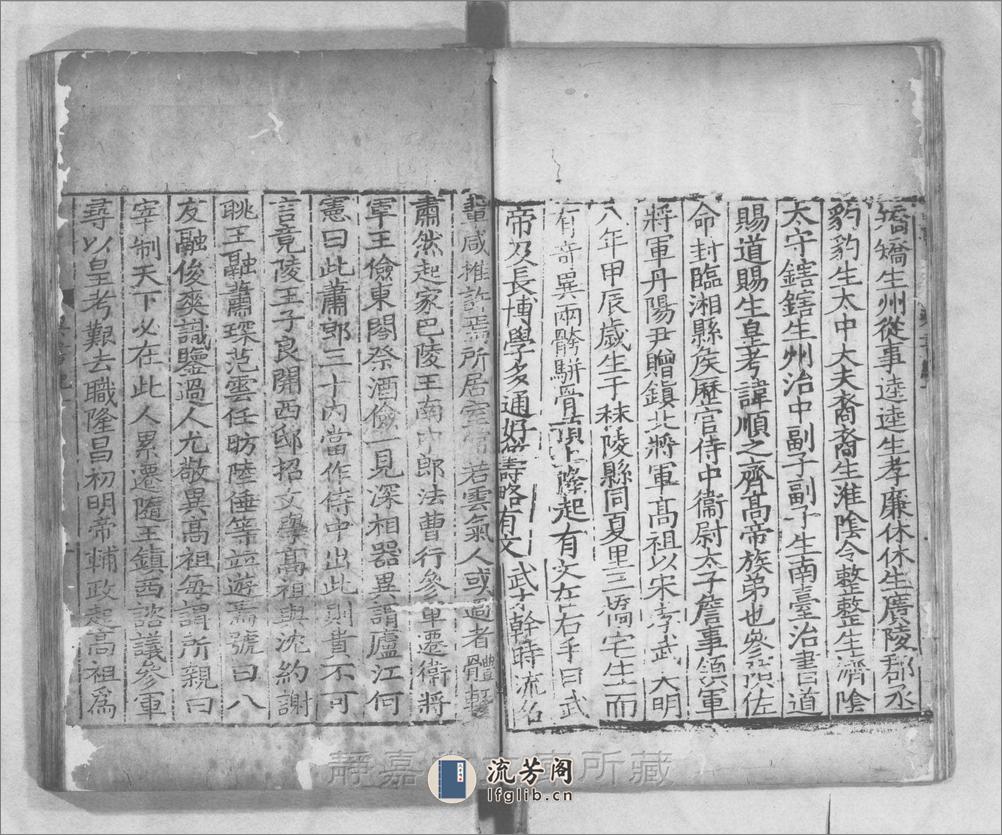 矯矯生州從事逵逵生孝廉休休生廣陵郡丞
豹豹生太中大夫裔裔生淮陰令整整生濟陰
太守鎋鎋生州治中副子副子生南臺治書道
賜道賜生皇考諱順之齊髙帝族弟也參預佐
命封臨湘縣侯歷官侍中衞尉太子詹事領軍
將軍丹陽尹贈鎮北將軍髙祖以宋孝武大明
八年甲辰歳生于秣陵縣同夏里三橋宅生而
有奇異兩髂駢骨頂上隆起有文在右手曰武
帝及長博學多通好籌略有文武才幹時流名
輩咸推許焉所居室常若雲氣人或過者體輒
肅然起家巴陵王南中郎法曹行參軍遷衛將
軍王儉東閣祭酒儉一見深相器異謂廬江何
憲曰此蕭郎三十內當作侍中出此則貴不可
言竟陵王子良開西邸招文學髙祖與沈約謝
朓王融蕭琛范雲任昉陸倕等竝遊焉號曰八
友融俊爽識鑒過人尤敬異髙祖每謂所親曰
宰制天下必在此人累遷隨王鎮西諮議參軍
尋以皇考艱去職隆昌初明帝輔政起高祖爲
靜嘉堂文庫所藏
流芳阁
lfglib.cn